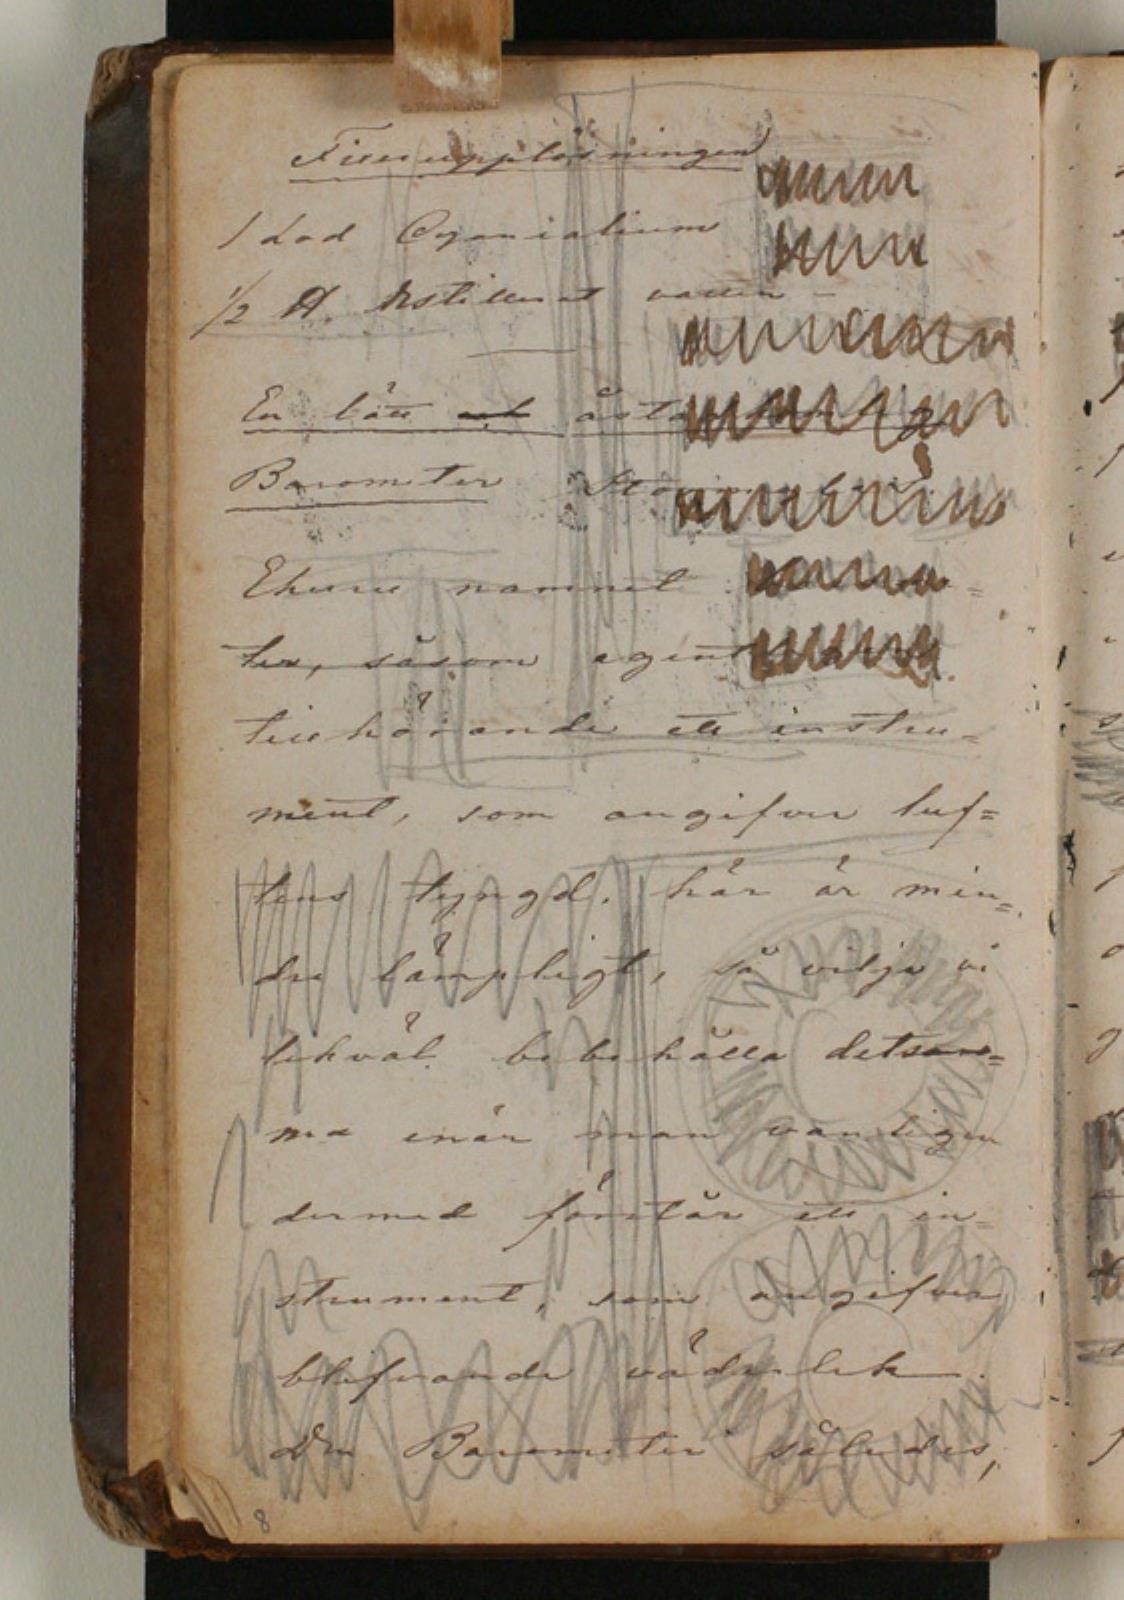 Fixeupplösningen
1 Lod Cyaniatium
1/2 ℔. destillerat vatten
En lätt
Barometer
Ehuru namnet
ter, såsom egent
tillhörande ett instru-
ment, som angifver luf=
tens tyngd, här är min=
dre lämpligt, så vilja vi
likväl bibehålla detsam=
ma enär man vanligen
dermed förstår ett in=
strument, som angifver
blifvande väderlek.
Den Barometer således,
8